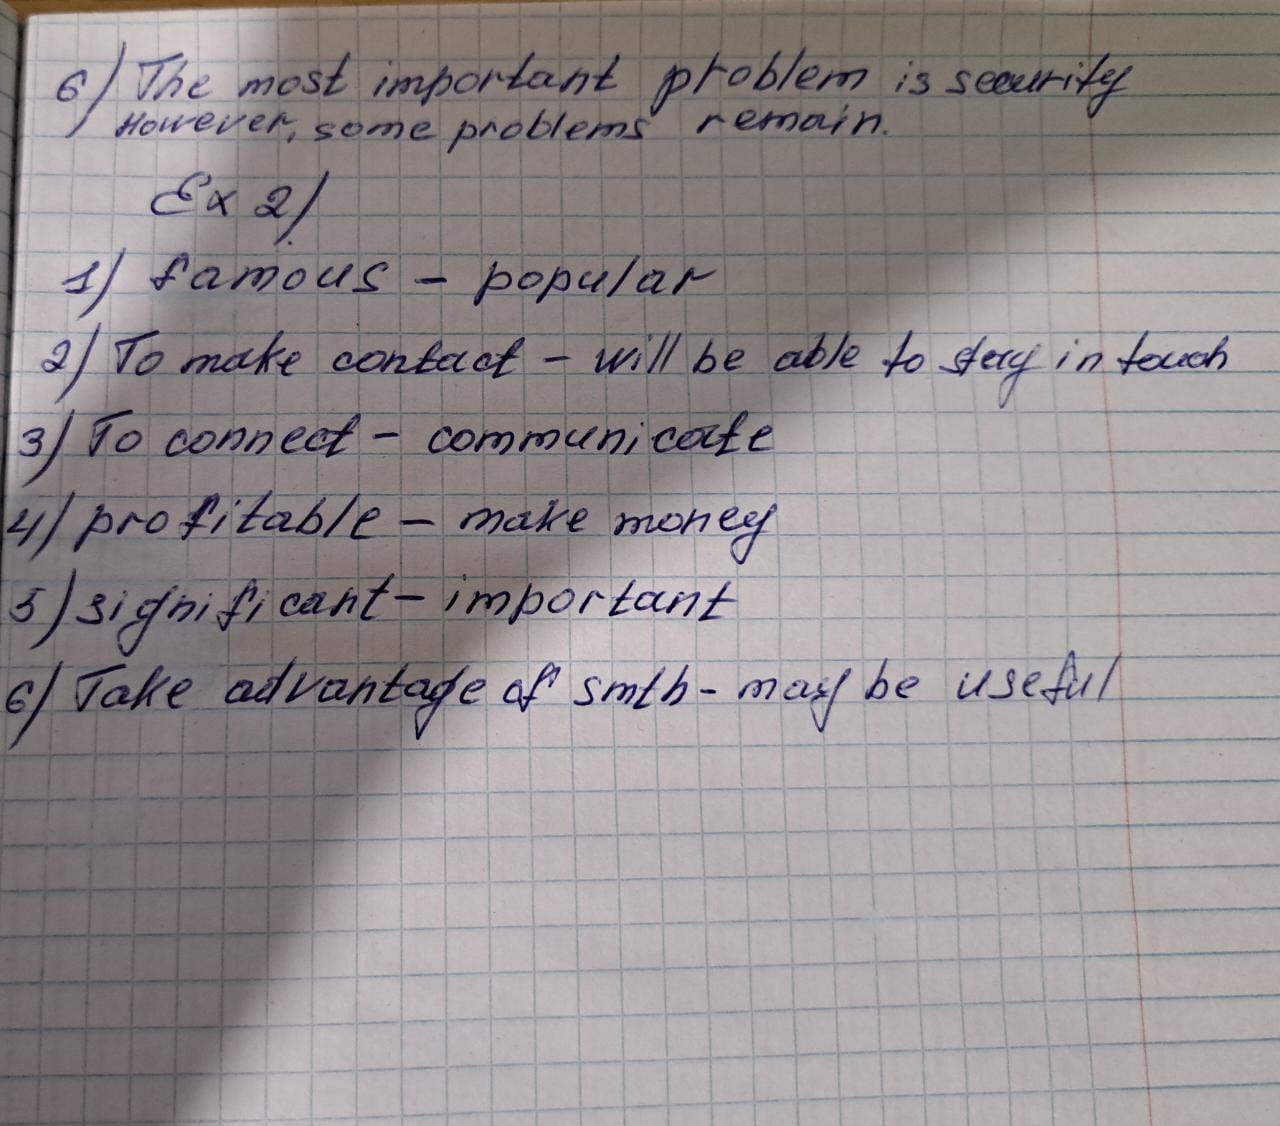 6) The most important problem is security
However, some problems remain.
Ex 2)
1) famous - popular
2) To make contact - will be able to stay in touch
3) To connect - communicate
4) profitable - make money
5) significant - important
6) Take advantage of smth - may be useful